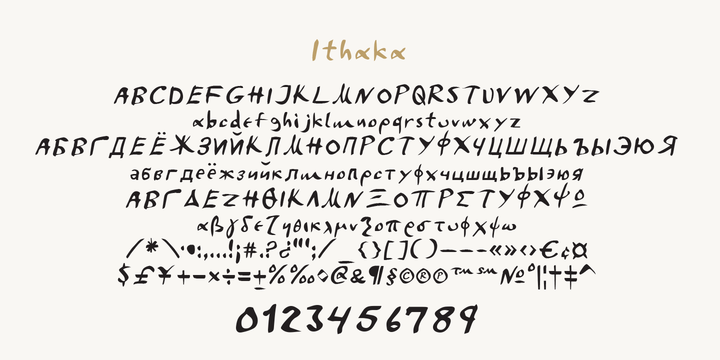 Ithaka
ABCDEFGHIJKLMNOPQRSTUVWXYZ
abcdefghijklmnopqrstuvwxyz
АБВГДЕЁЖЗИЙКЛМНОПРСТУФХЧЦШЩЬЪЫЭЮЯ
абвгдеёжзийклмнопрстуфхчцшщьъыэюя
ΑΒΓΔΕΖΗΘΙΚΛΜΝΞΟΠΡΣΤΥΦΧΨΩ
αβγδεζηθικλμνξοπρσςτυφχψω
/*\·•:,...!¡#.?¿"';/_{}[]()-–—«»‹›€¢¤
$£¥+−×÷=±%‰◊@&¶§©®℗™℠№°|¦†‡^
0123456789